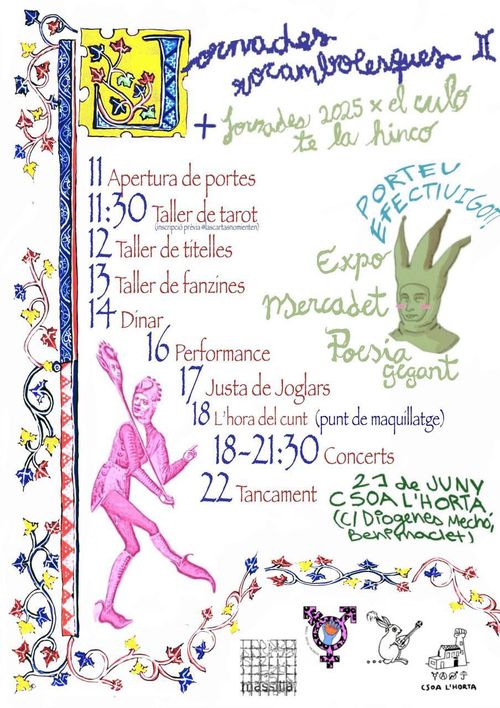 Jornades
rocambolesques II
+ Jornades 2025 x el culo
te la hinco
11 Apertura de portes
11:30 Taller de tarot
(inscripció prèvia @lascartasnomienten)
12 Taller de titelles
13 Taller de fanzines
14 Dinar
16 Performance
17 Justa de Joglars
18 L'hora del cunt (punt de maquillatge)
18-21:30 Concerts
22 Tancament
PORTEU
EFECTIU
Expo
Mercadet
Poesia
gegant
de JUNY
CSOA L'HORTA
(C/ Diogenes Mechó,
Benimaclet)
massilia
CSOA L'HORTA